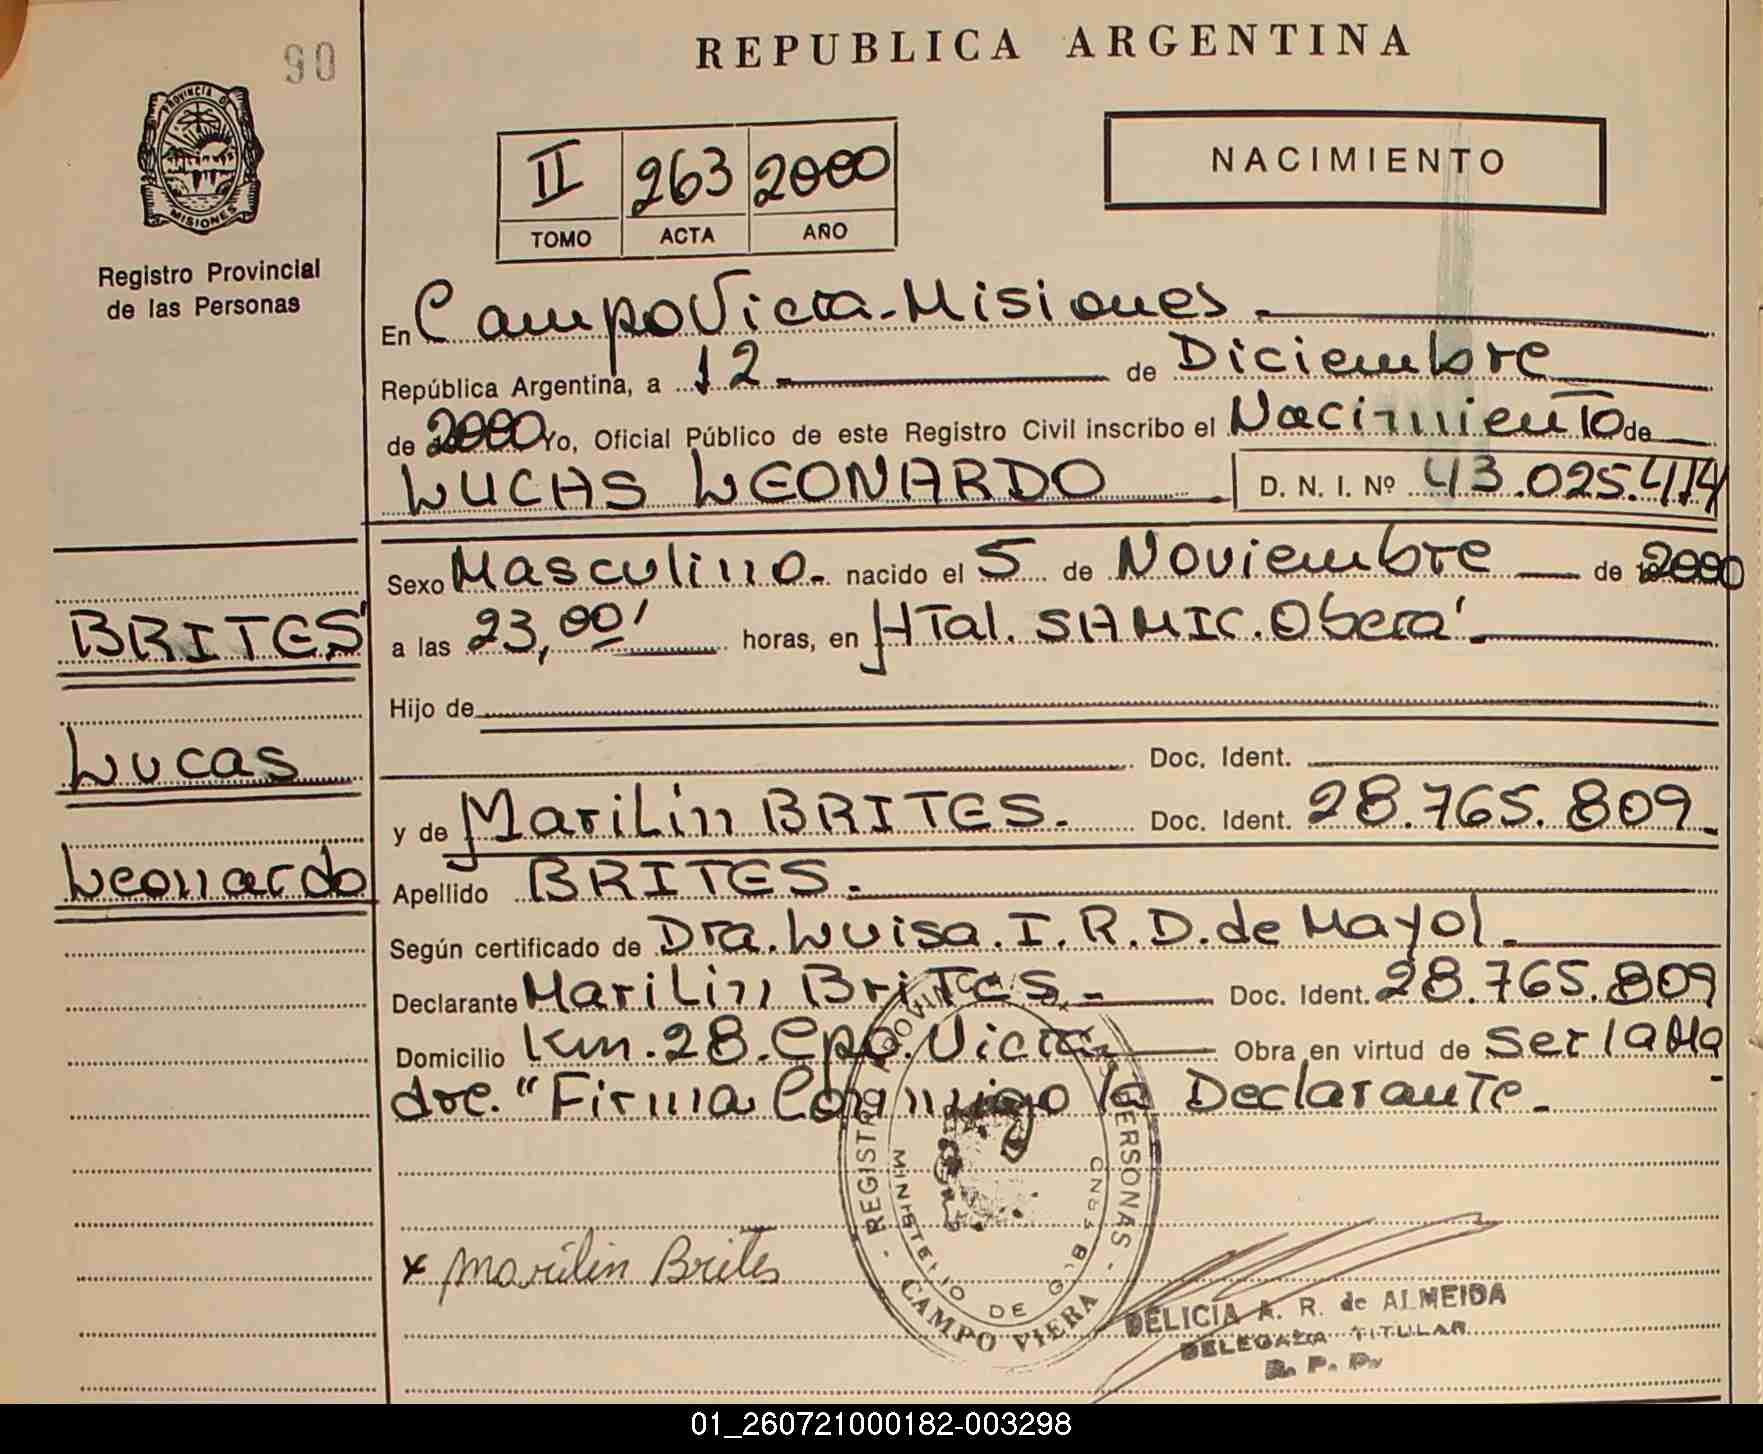 90
REPUBLICA ARGENTINA
PROVINCIA DE
MISIONES
Registro Provincial
de las Personas
II 263 2000
TOMO ACTA AÑO
NACIMIENTO
En Campo Viera-Misiones.
República Argentina, a 12 de Diciembre
de 2000 Yo, Oficial Público de este Registro Civil inscribo el Nacimiento de
LUCAS LEONARDO D. N. I. Nº 43.025.414
Sexo Masculino. nacido el 5 de Noviembre de 2000
BRITES
a las 23,00' horas, en HTal. SAMIC. Oberá.
Hijo de
Lucas
Doc. Ident.
y de Marilin BRITES. Doc. Ident. 28.765.809.
Leonardo
Apellido BRITES.
Según certificado de Dra. Luisa. I. R. D. de Mayol.
Declarante Marilin Brites - Doc. Ident. 28.765.809
Domicilio Km. 28. Cpo. Viera Obra en virtud de ser la Ma
dre. "Firma Conmigo la Declarante.
x Marilin Brites
REGISTRO PROVINCIAL PERSONAS
MINISTERIO DE GOB
CAMPO VIERA
DELICIA A. R. de ALMEIDA
DELEGADA TITULAR
R. P. P.
01_260721000182-003298